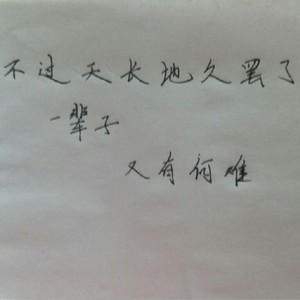 不过天长地久罢了
一辈子
又有何难